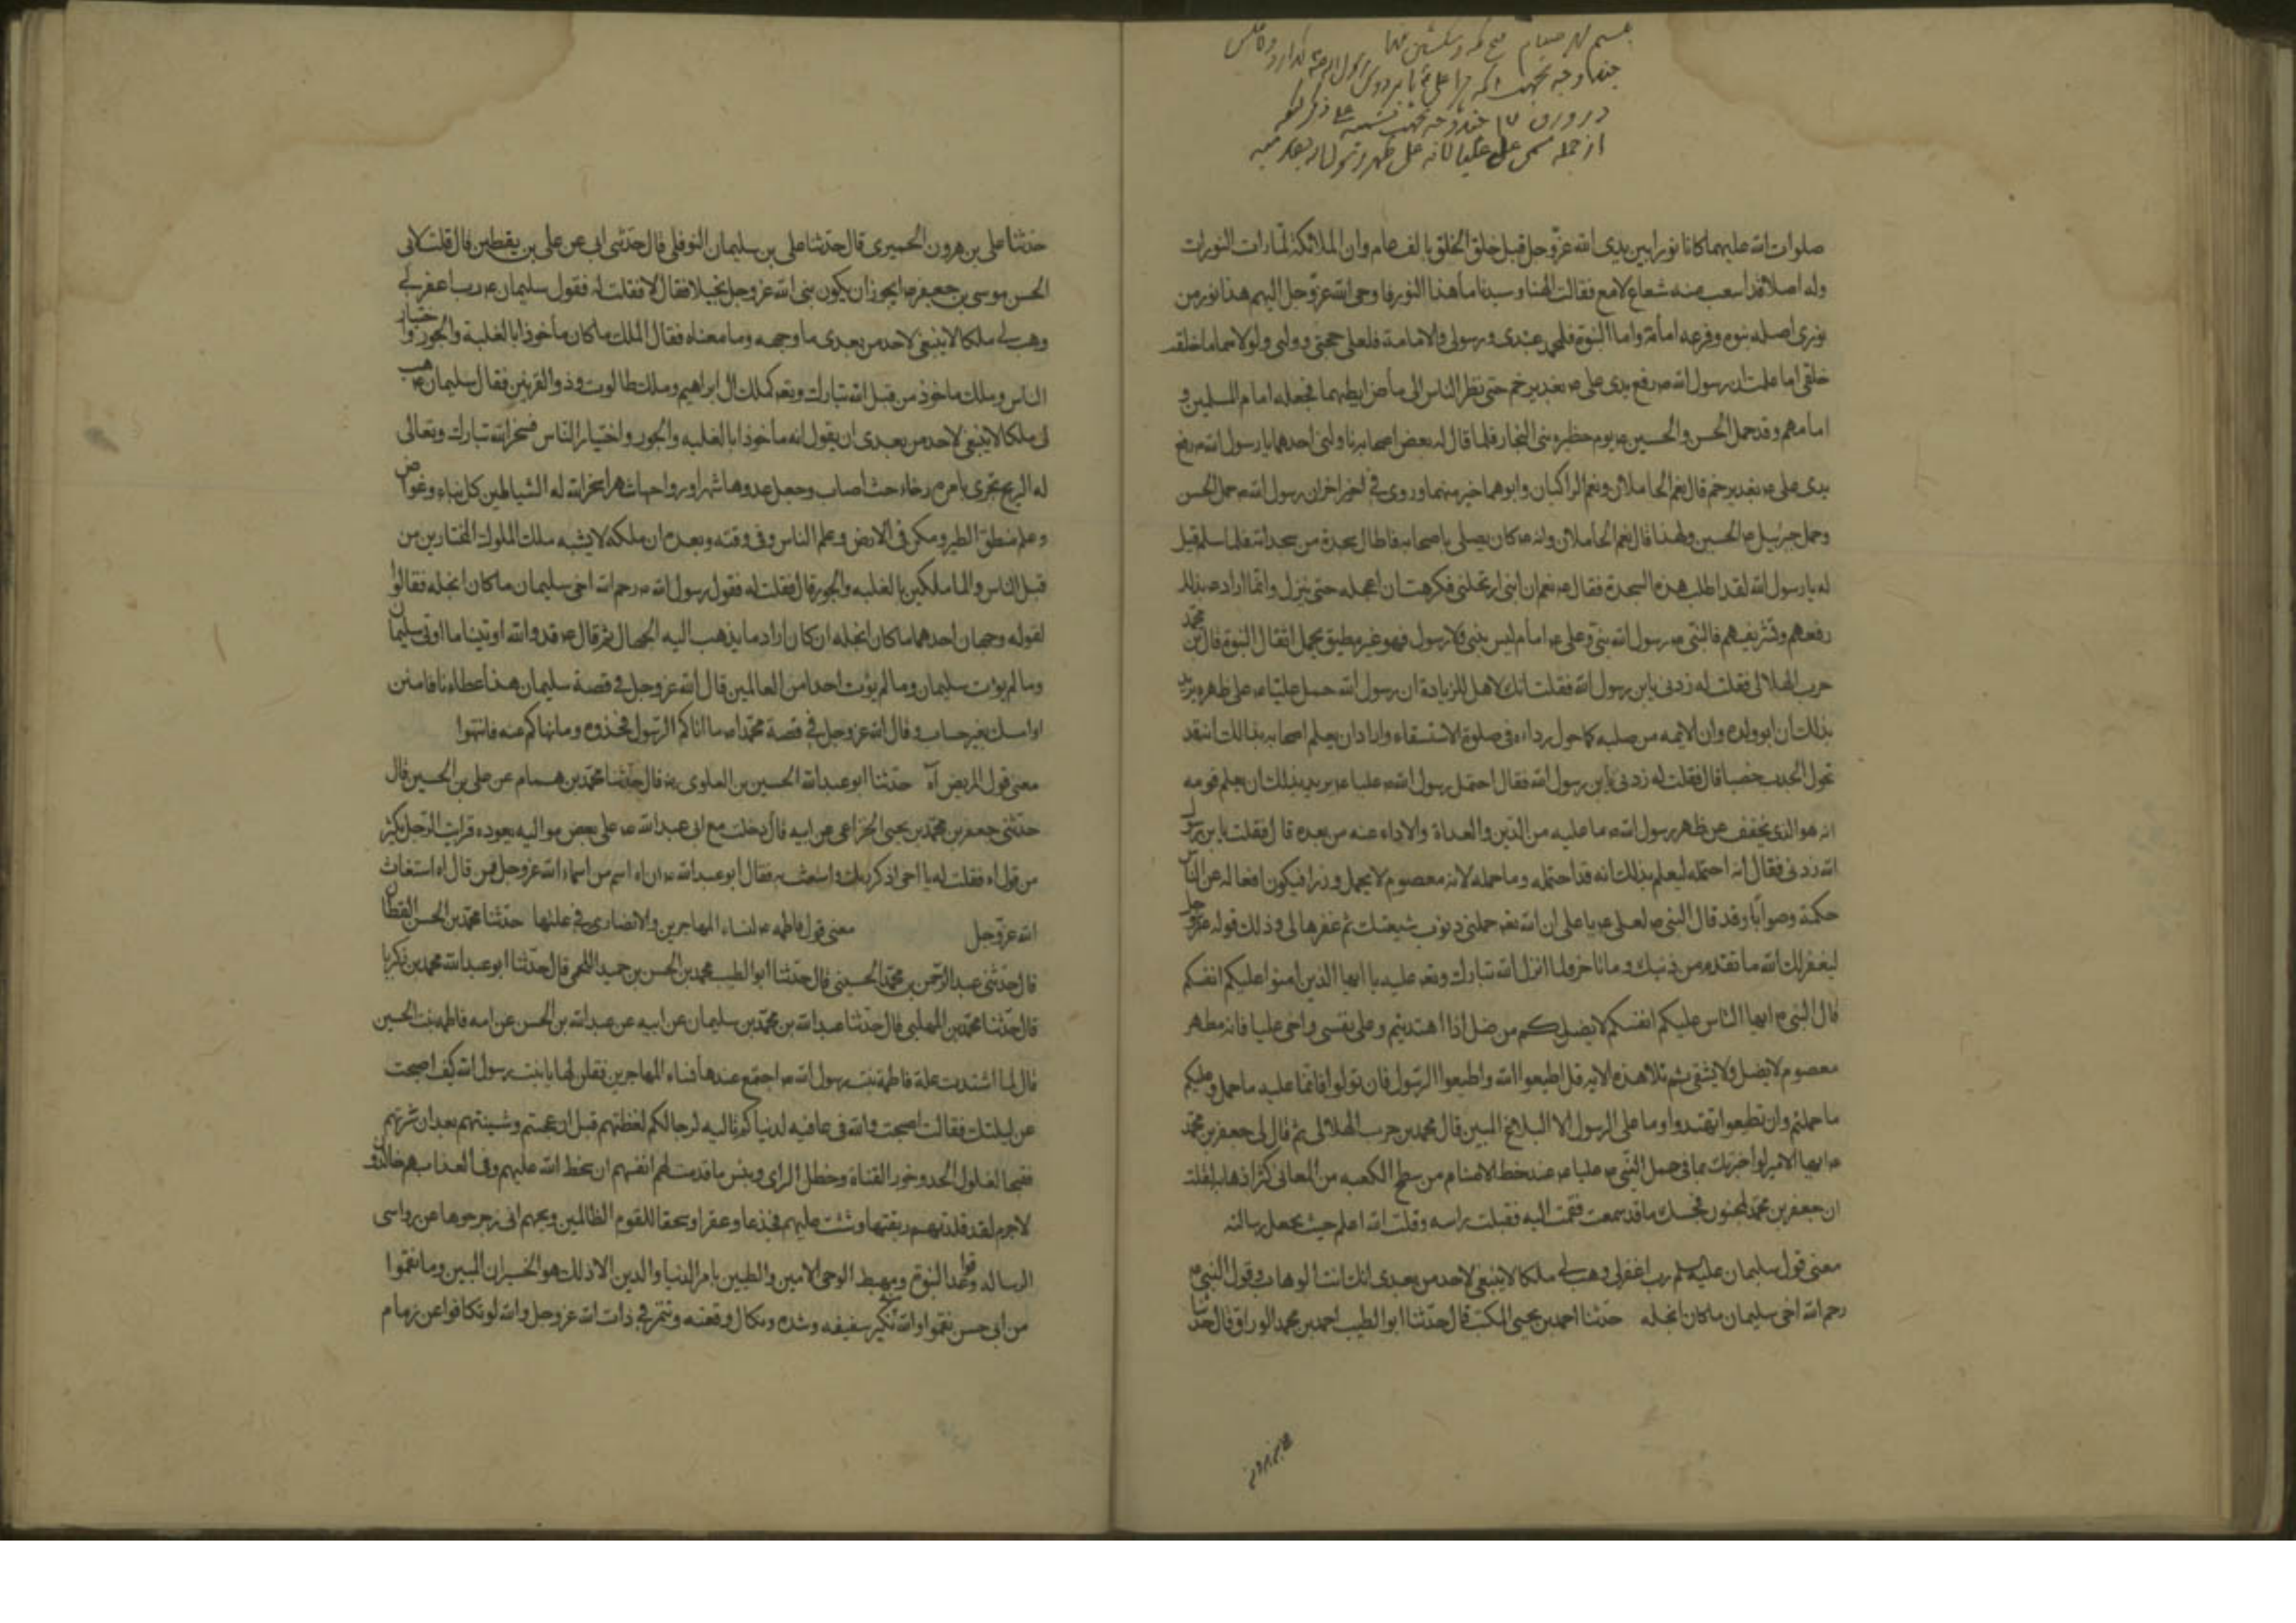 صلوات الله عليهما كانا نورا بين يدى الله عزّ وجل قبل خلق الخلق بالف عام وان الملائكة لما رات النور رات
وله اصلا قد انشعب منه شعاع لامع فقالت الهنا وسيدنا ما هذا النور فاوحى الله عزّ وجل اليهم هذا نور من
نورى اصله نبوه وفرعه امامة واما النبوة فلمحمد عبدى ورسولى والامامة فلعلى حجتى ووليى ولولاهما ما خلقت
خلقى اما علمت ان رسول الله ص رفع يدى على ع بغدير خم حتى نظر الناس الى بياض ابطيهما فجعله امام المسلمين و
امامهم وقد حمل الحسن والحسين ع يوم حظيره بنى النجار فلما قال له بعض اصحابه ناولنى احدهما يا رسول الله
قال نعم الحاملان ونعم الراكبان وابوهما خير منهما وروى فى خبر اخر ان رسول الله ص حمل الحسن
وحمل جبرئيل ع الحسين ولهذا قال نعم الحاملان وانه ص كان يصلى باصحابه فاطال سجدة من سجداته فلما سلم قيل
له يا رسول الله لقد اطلت هذه السجدة فقال ص نعم ان ابنى ارتحلنى فكرهت ان اعجله حتى ينزل وانما اراد ص بذلك
رفعهم وتشريفهم فالنبى ص رسول الله نبى وعلى ع امام ليس بنبى ولا رسول فهو غير مطيق بحمل اثقال النبوة قال محمد بن
حرب الهلالى فقلت له زدنى يا بن رسول الله فقلت انك لاهل للزيادة ان رسول الله حمل عليا ع على ظهره يريد
بذلك ان ابو ولده وان الائمه من صلبه كما حول رداءه فى صلوة الاستسقاء واراد ان يعلم اصحابه بذالك انه قد
تحول الجدب خصبا قال فقلت له زدنى يا بن رسول الله فقال احتمل رسول الله ص عليا ع يريد بذلك ان يعلم قومه
انه هو الذى يخفف عن ظهر رسول الله ص ما عليه من الدين والعداة والاداء عنه من بعده قال فقلت يا بن رسول
الله زدنى فقال انه احتمله ليعلم بذلك انه قد احتمله وما حمله لانه معصوم لا يحمل وزرا فيكون افعاله عن الناس
حكمة وصوابا وقد قال النبى ص لعلى ع يا على ان الله تعه حملنى ذنوب شيعتك ثم غفرها لى وذلك قوله عز وجل
ليغفر لك الله ما تقدم من ذنبك وما تاخر ولما انزل الله تبارك وتعه عليه يا ايها الذين امنوا عليكم انفسكم
قال النبى ص ايها الناس عليكم انفسكم لا يضلكم من ضل اذا اهتديتم وعلى نفسى واخى عليا فانه مطهر
معصوم لا يضل ولا يشقى ثم تلا هذه الايه قل اطيعوا الله واطيعوا الرسول فان تولوا فانما عليه ما حمل وعليكم
ما حملتم وان تطيعوا تهتدوا وما على الرسول الا البلاغ المبين قال محمد بن حرب الهلالى ثم قال لى جعفر بن محمد
ع ايها الامير لو اخبرتك بما فى حمل النبى ص عليا ع عند حط الاصنام من سطح الكعبه من المعانى لقلت
ان جعفر بن محمد لمجنون فحسبك ما قد سمعت فقمت اليه فقبلت راسه وقلت الله اعلم حيث يجعل رسالته
معنى قول سليمان عليه سلم رب اغفر لى وهب لى ملكا لا ينبغى لاحد من بعدى انك انت الوهاب وقول النبى ص
رحم الله اخى سليمان ما كان ابخله حدثنا احمد بن يحيى المكتب قال حدثنا ابو الطيب احمد بن محمد الوراق قال حدثنا
حدثنا على بن هرون الحميرى قال حدثنا على بن سليمان النوفلى قال حدثنى ابى عن على بن يقطين قال قلت لابى
الحسن موسى بن جعفر ع ايجوز ان يكون نبى الله عز وجل بخيلا فقال لا فقلت له فقول سليمان ع رب اغفر لى
وهب لى ملكا لا ينبغى لاحد من بعدى ما وجهه وما معناه فقال الملك ما كان ماخوذا بالغلبة والجور واختيار
الناس وملك ماخوذ من قبل الله تبارك وتعه كملك ال ابراهيم وملك طالوت وذو القرنين فقال سليمان ع هب
لى ملكا لا ينبغى لاحد من بعدى ان يقول انه ماخوذا بالغلبه والجور واختيار الناس فسخر الله تبارك وتعالى
له الريح تجرى بامره رخاء حيث اصاب وجعل غدوها شهرا ورواحها شهرا وسخر الله له الشياطين كل بناء وغواص
وعلم منطق الطير ومكن فى الارض وعلم الناس وفى وقته وبعده ان ملكه لا يشبه ملك الملوك المختارين من
قبل الناس والمالكين بالغلبه والجور قال فقلت له فقول رسول الله ص رحم الله اخى سليمان ما كان ابخله فقال
لقوله وجهان احدهما ما كان ابخله ان كان اراد ما يذهب اليه الجهال ثم قال ع قد والله اوتينا ما اوتى سليمان
وما لم يؤت سليمان وما لم يؤت احدا من العالمين قال الله عز وجل فى قصة سليمان هذا عطاءنا فامنن
او امسك بغير حساب وقال الله عز وجل فى قصة محمد ص ما اتاكم الرسول فخذوه وما نهاكم عنه فانتهوا
معنى قول المريض آه حدثنا ابو عبد الله الحسين بن العلوى ره قال حدثنا محمد بن همام عن على بن الحسين قال
حدثنى جعفر بن محمد بن يحيى الخزاعى عن ابيه قال دخلت مع ابى عبد الله ع على بعض مواليه يعوده فرايت الرجل يكثر
من قول اه فقلت له يا اخى اذكر ربك واستغث به فقال ابو عبد الله ع ان اه اسم من اسماء الله عز وجل فمن قال اه استغاث
الله عز وجل معنى قول فاطمه ع لنساء المهاجرين والانصارى فى علتها حدثنا محمد بن الحسن القطان
قال حدثنى عبد الرحمن بن محمد الحسينى قال حدثنا ابو الطيب محمد بن الحسن بن حميد اللخمى قال حدثنا ابو عبد الله محمد بن زكريا
قال حدثنا محمد بن المهلبى قال حدثنا عبد الله بن محمد بن سليمان عن ابيه عن عبد الله بن الحسن عن امه فاطمه بنت الحسين
قال لما اشتدت علة فاطمة بنت رسول الله ص اجتمع عندها نساء المهاجرين فقلن لها يا بنت رسول الله كيف اصبحت
عن ليلتك فقالت اصبحت والله فى عافيه لدنياكم قاليه لرجالكم لفظتهم قبل ان عجمتهم وشنيتهم بعد ان سبرتهم
فقبحا لفلول الحد وخور القناة وخطل الراى وبئس ما قدمت لهم انفسهم ان سخط الله عليهم وفى العذاب هم خالدون
لا جرم لقد قلدتهم ربقتها وشنت عليهم فجذعا وعقرا وسحقا للقوم الظالمين ويحهم انى زحزحوها عن رواسى
الرساله وقواعد النبوة ومهبط الوحى الامين والطبين بامر الدنيا والدين الا ذلك هو الخسران المبين وما نقموا
من ابى حسن نقموا والله نكير سيفه وشده ونكال وقعته وتنمره فى ذات الله عز وجل والله لو تكافوا عن زمام